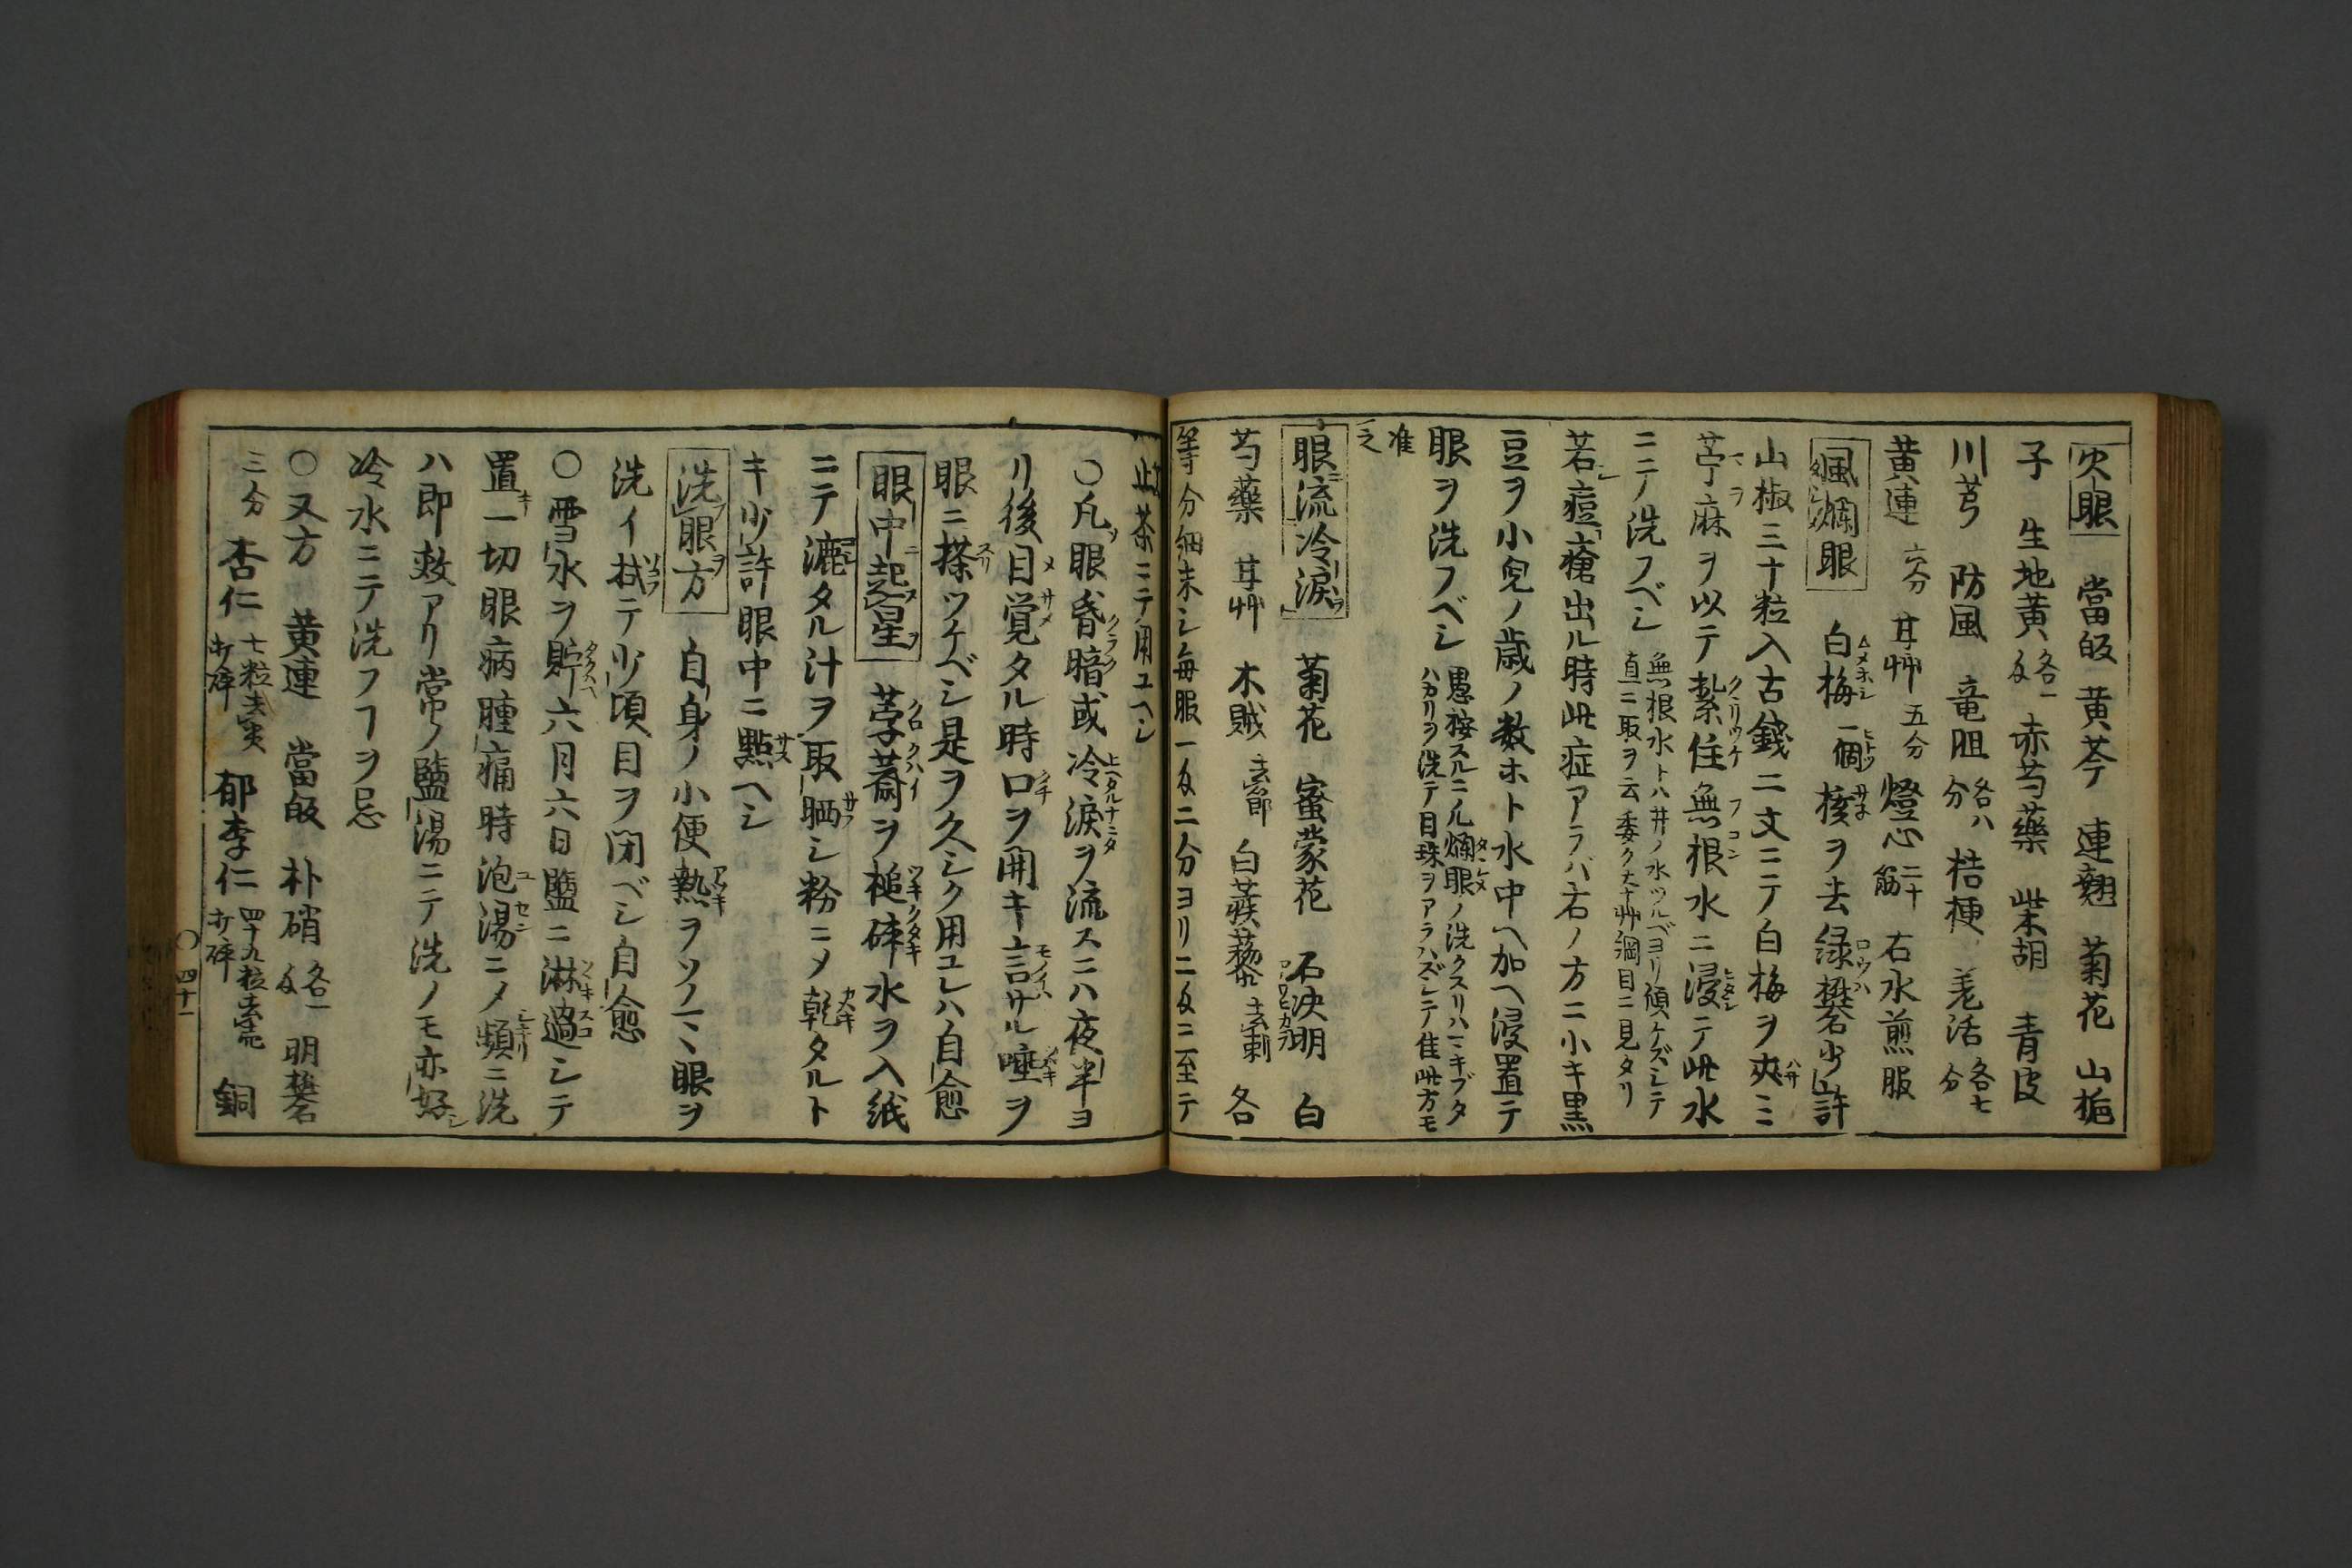 火眼 當皈 黄芩 連翹 菊花 山梔
子 生地黄各一匁 赤芍藥 柴胡 青皮
川芎 防風 竜胆各八分 桔梗 羌活各七分
黄連六分 甘艸五分 燈心二十筋 右水煎服
風爛眼 白梅一個核ヲ去緑礬少許
山椒三十粒入古錢二文ニテ白梅ヲ夾ミ
苧麻ヲ以テ紮住無根水ニ浸テ此水
ニテ洗フベシ 無根水トハ井ノ水ツルベヨリ傾ケズシテ
直ニ取ヲ云委ク本艸綱目ニ見タリ
若痘瘡出ル時此症アラバ右ノ方ニ小キ黒
豆ヲ小兒ノ歳ノ数ホト水中ヘ加ヘ浸置テ
眼ヲ洗フベシ 愚按スルニ爛眼ノ洗クスリハマキブタ
ハカリヲ洗テ目珠ヲアラハズシテ佳此方モ
准
之
眼流冷淚 菊花 蜜蒙花 石决明 白
芍藥 甘艸 木賊去節 白蒺藜去刺 各
等分細末シ毎服一匁二分ヨリ二匁ニ至テ
止茶ニテ用ユヘシ
○凡眼昏暗或冷淚ヲ流スニハ夜半ヨ
リ後目覚タル時口ヲ開キ言サル唾ヲ
眼ニ搽ツケベシ是ヲ久シク用ユレハ自愈
眼中起星 荸薺ヲ槌碎水ヲ入紙
ニテ漉タル汁ヲ取晒シ粉ニメ乾タルト
キ少許眼中ニ點ヘシ
洗眼方 自身ノ小便熱ヲソノマヽ眼ヲ
洗イ拭テ少頃目ヲ閉ベシ自愈
○雪水ヲ貯六月六日鹽ニ淋過シテ
置一切眼病腫痛時泡湯ニメ頻ニ洗
ハ即效アリ常ノ鹽湯ニテ洗ノモ亦好
冷水ニテ洗フヿヲ忌
○又方 黄連 當皈 朴硝各一匁 明礬
三分 杏仁七粒打碎 郁李仁四十九粒去壳打碎 銅
○四十一